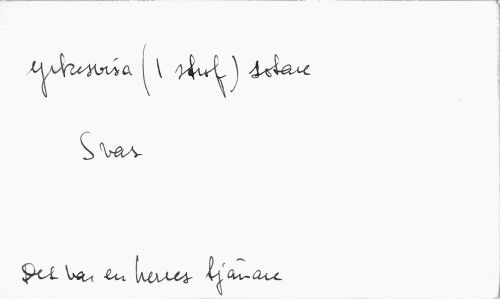 yrkesvisa (1 strof) sotare
Svar
Det var en herres tjänare